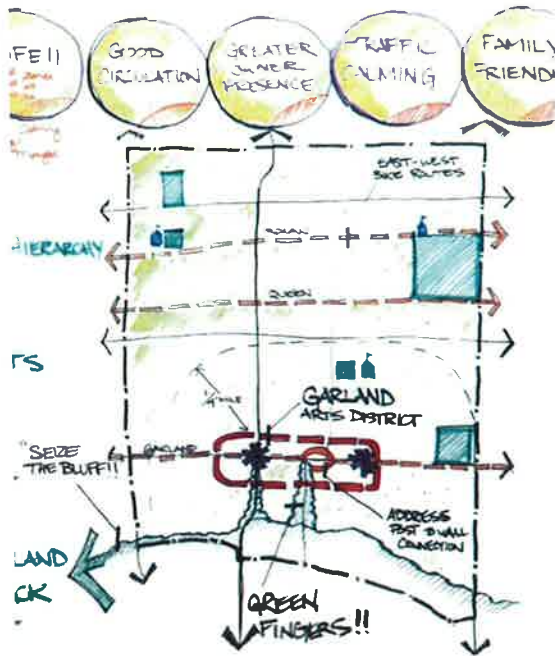 FE!!
GOOD
CIRCULATION
GREATER
OWNER
PRESENCE
TRAFFIC
CALMING
FAMILY
FRIEND
EAST-WEST
BIKE ROUTES
HIERARCHY
ROWAN
QUEEN
TS
1/4 MILE
GARLAND
ARTS DISTRICT
GARLAND
"SEIZE
THE BLUFF!!
ADDRESS
POST & WALL
CONNECTION
LAND
CK
GREEN
FINGERS!!